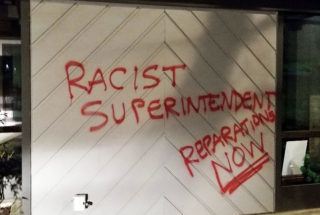 RACIST
SUPERINTENDENT
REPARATIONS
NOW